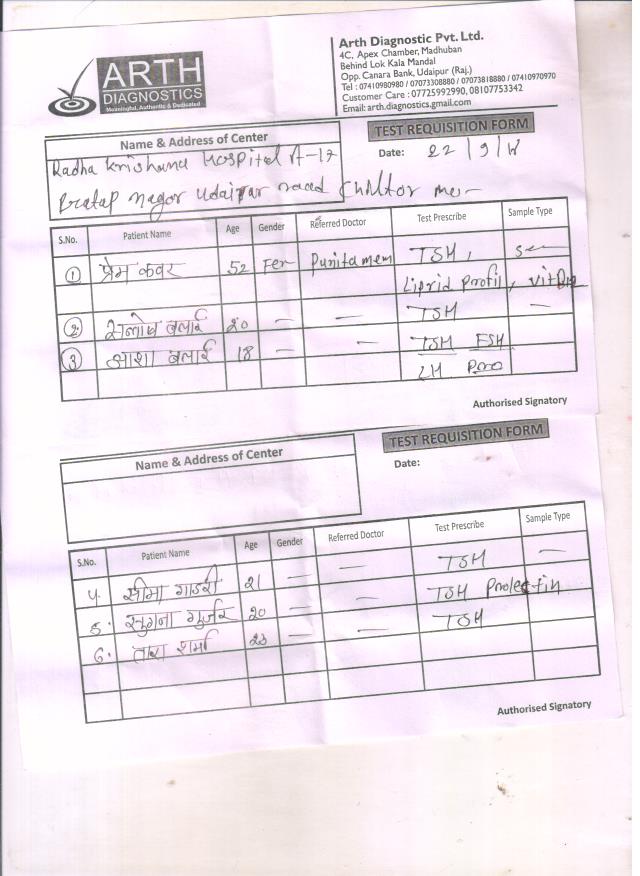 ARTH
DIAGNOSTICS
Meaningful, Authentic & Dedicated
Arth Diagnostic Pvt. Ltd.
4C, Apex Chamber, Madhuban
Behind Lok Kala Mandal
Opp. Canara Bank, Udaipur (Raj.)
Tel : 07410980980 / 07073308880 / 07073818880 / 07410970970
Customer Care : 07725992990, 08107753342
Email: arth.diagnostics.gmail.com
TEST REQUISITION FORM
Name & Address of Center
Date: 22/9/
Radha Krishana Hospital A-17
Pratap nagar Udaipur road
S.No. Patient Name Age Gender Referred Doctor Test Prescribe Sample Type
1 प्रेम कवर 52 Fer Punitamem TSH,
Liprid Profil, vit
2. बलाई 20 — — TSH —
3 आशा बलाई 18 — — TSH FSH
LH Pro
Authorised Signatory
TEST REQUISITION FORM
Name & Address of Center
Date:
S.No. Patient Name Age Gender Referred Doctor Test Prescribe Sample Type
4. सीमा गाडरी 21 — — TSH —
5. सुगना गुर्जर 20 — — TSH Prolectin
6. तारा शर्मा 23 — — TSH
Authorised Signatory